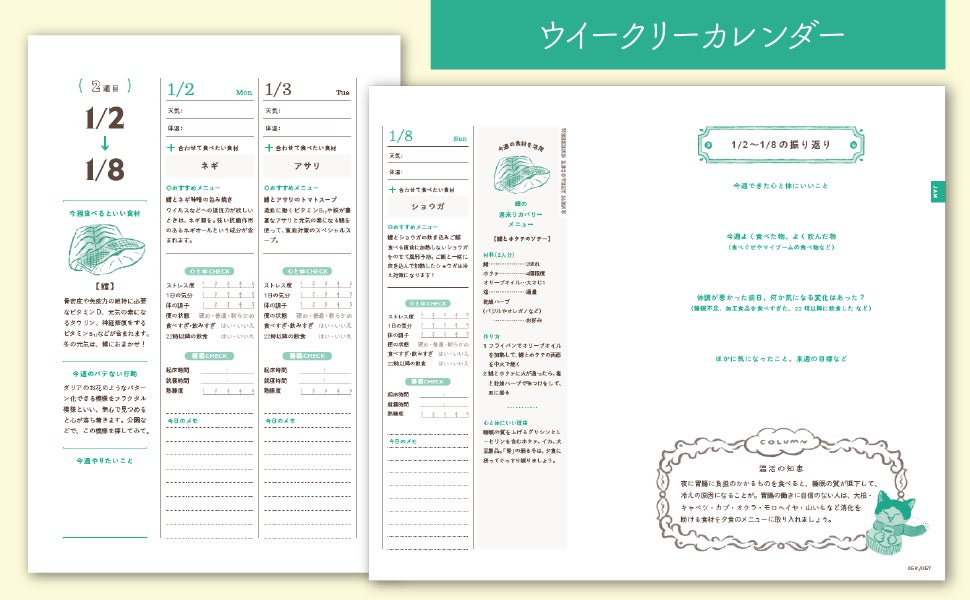 ウイークリーカレンダー
2週目
1/2
↓
1/8
今週食べるといい食材
【鱈】
骨密度や免疫力の維持に必要
なビタミンD、元気の素にな
るタウリン、神経修復をする
ビタミンB₁₂などが含まれます。
冬の元気は、鱈におまかせ!
今週のバテない行動
ダリアのお花のようなパター
ン化できる模様をフラクタル
模様といい、無心で見つめる
と心が落ち着きます。公園な
どで、この模様を探してみて。
今週やりたいこと
1/2 Mon
天気:
体温:
+ 合わせて食べたい食材
ネギ
◎おすすめメニュー
鱈とネギ味噌の包み焼き
ウイルスなどへの抵抗力が欲しい
ときは、ネギ類を。強い抗菌作用
のあるネギオールという成分が含
まれます。
心と体CHECK
ストレス度 1 2 3 4 5
1日の気分 1 2 3 4 5
体の調子 1 2 3 4 5
便の状態 硬め・普通・軟らかめ
食べすぎ・飲みすぎ はい・いいえ
22時以降の飲食 はい・いいえ
睡眠CHECK
起床時間 :
就寝時間 :
熟睡度 1 2 3 4 5
今日のメモ
1/3 Tue
天気:
体温:
+ 合わせて食べたい食材
アサリ
◎おすすめメニュー
鱈とアサリのトマトスープ
造血に働くビタミンB₁₂や鉄が豊
富なアサリと元気の素になる鱈を
使って、貧血対策のスペシャルス
ープ。
心と体CHECK
ストレス度 1 2 3 4 5
1日の気分 1 2 3 4 5
体の調子 1 2 3 4 5
便の状態 硬め・普通・軟らかめ
食べすぎ・飲みすぎ はい・いいえ
22時以降の飲食 はい・いいえ
睡眠CHECK
起床時間 :
就寝時間 :
熟睡度 1 2 3 4 5
今日のメモ
1/8 Sun
天気:
体温:
+ 合わせて食べたい食材
ショウガ
◎おすすめメニュー
鱈とショウガの炊き込みご飯
食べる直前に加熱しないショウガ
をのせて風邪予防。ご飯と一緒に
炊き込んで加熱したショウガは冷
え対策になります!
心と体CHECK
ストレス度 1 2 3 4 5
1日の気分 1 2 3 4 5
体の調子 1 2 3 4 5
便の状態 硬め・普通・軟らかめ
食べすぎ・飲みすぎ はい・いいえ
22時以降の飲食 はい・いいえ
睡眠CHECK
起床時間 :
就寝時間 :
熟睡度 1 2 3 4 5
今日のメモ
今週の食材を活用
鱈の
週末リカバリー
メニュー
【鱈とホタテのソテー】
材料(2人分)
鱈………2切れ
ホタテ………4個程度
オリーブオイル…大さじ1
塩………適量
乾燥ハーブ
(バジルやオレガノなど)
………お好み
作り方
1 フライパンでオリーブオイル
を加熱して、鱈とホタテの両面
を中火で焼く
2 鱈とホタテに火が通ったら、塩
と乾燥ハーブで味つけをして、
皿に盛る
心と体にいい理由
睡眠の質を上げるグリシンとL
-セリンを含むホタテ、イカ、大
1/2〜1/8の振り返り
今週できた心と体にいいこと
今週よく食べた物、よく飲んだ物
(食べぐせやマイブームの食べ物など)
体調が悪かった前日、何か気になる変化はあった?
(睡眠不足、加工食品を食べすぎた、22時以降に飲食した など)
ほかに気になったこと、来週の目標など
JAN
COLUMN
温活の知恵
夜に胃腸に負担のかかるものを食べると、睡眠の質が低下して、
冷えの原因になることが。胃腸の働きに自信のない人は、大根・
キャベツ・カブ・オクラ・モロヘイヤ・山いもなど消化を
助ける食材を夕食のメニューに取り入れましょう。
056/057